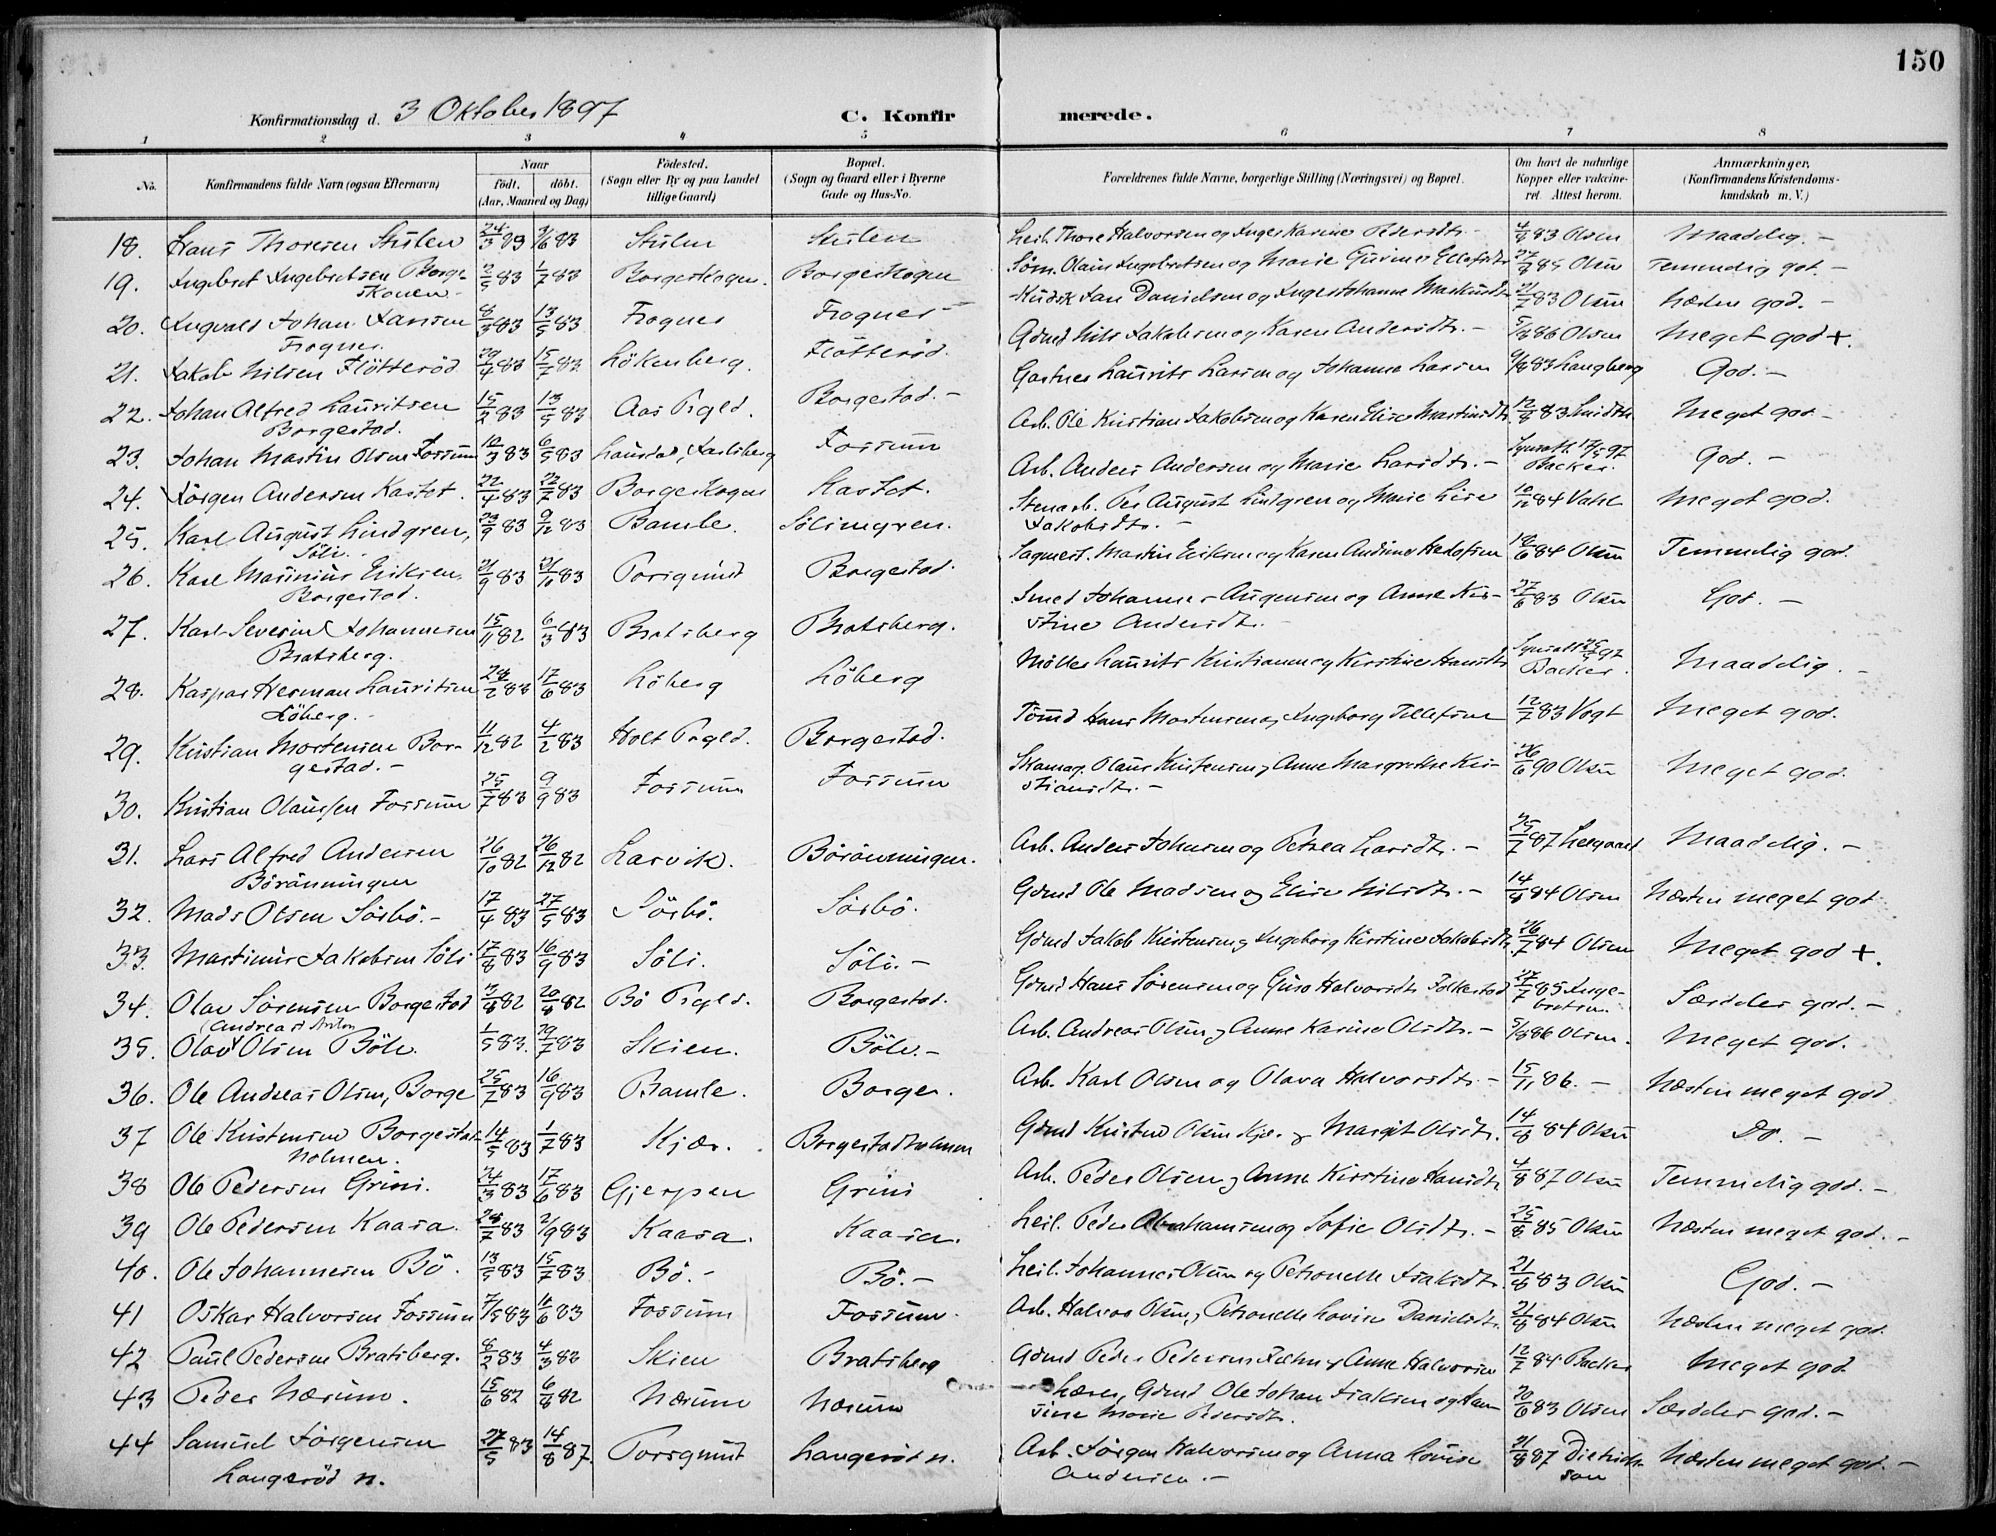 150
Konfirmationsdag d. 3 Oktober 1897
C. Konfirmerede.
1 2 3 4 5 6 7 8
No.
Konfirmandens fulde Navn (ogsaa Efternavn)
Naar
født. døbt.
(Aar, Maaned og Dag)
Födested.
(Sogn eller By og paa Landet
tillige Gaard)
Bopæl.
(Sogn og Gaard eller i Byerne
Gade og Hus-No.
Forældrenes fulde Navne, borgerlige Stilling (Næringsvei) og Bopæl.
Om havt de naturlige
Kopper eller vakcine-
ret. Attest herom.
Anmærkninger,
(Konfirmandens Kristendoms-
kundskab m. V.)
18. Hans Thoresen Stulen 24/3 83 3/6 83 Stulen Stulen Leil. Thore Halvorsen og Inger Karine 4/8 83 Olsen Maadelig. -
19. Ingebret Ingebretsen Borge- 2/5 83 1/7 83 Borgeskogen. Borgeskogen Søm. Olaus Ingebretsen og Marie 85 Olsen Temmelig god. -
skouen -
20. Ingvald Johan Jansen 8/3 83 13/5 83 Frogner Frogner Jan Danielsen og Inger Johanne 21/7 83 Olsen Næsten god. -
Frogner.
21. Jakob Nilsen Flötteröd 29/4 83 15/7 83 Lökenberg. Flötteröd. Gdmd Nils Jakobsen og Karen Andersdtr. - 86 Olsen Meget god +.
22. Johan Alfred Lauritsen 15/2 83 13/5 83 Aas Prgld. Borgestad. - Gartner Laurits Larsen og Johanne Larsen 83 Langberg God. -
Borgestad.
23. Johan Martin Olsen Fossum 10/3 83 6/5 83 Laurdal, Jarlsberg Fossum Arb. Ole Kristian Jakobsen og Karen Elise Martinsdtr. 12/9 83 Smidth Meget god -
24. Jörgen Andersen Kastet. 22/4 83 22/7 83 Borgeskogen Kastet. Arb. Anders Andersen og Marie Larsdtr. - 97 Backer. God. -
25. Karl August Lindgren, 29/9 83 9/12 83 Bamle. Sölimyren. Stenarb. Per August Lindgren og Marie Lise 84 Meget god.
Söli. Jakobsdtr. -
26. Karl Marinius Eriksen, 21/9 83 21/11 83 Porsgrund Borgestad. Sagmest. Martin Eriksen og Karen Andrine 84 Olsen Temmelig god.
Borgestad.
27. Karl Severin Johannesen 15/11 82 6/3 83 Bratsberg Bratsberg. Smed Johannes Augensen og Anne Kir- 27/6 83 Olsen God. -
Bratsberg. stine Andersdtr. -
28. Kaspar Herman Lauritsen 17/6 83 Löberg Löberg Möller Laurits Kristiansen og Kirstine Hansdtr. 97 Backer. Maadelig. -
Löberg. -
29. Kristian Mortensen Bor- 11/12 82 4/2 83 Holt Prgld. Borgestad. Tömmd Hans Mortensen og Ingeborg Tellefsen 12/7 83 Vogt Meget god.
gestad. -
30. Kristian Olaussen Fossum 25/7 83 9/9 83 Fossum Fossum Skomag. Olaus Kristensen og Anne Margrethe Kri- 26/6 90 Olsen Meget god.
stiansdtr. -
31. Lars Alfred Andersen 26/10 82 26/12 82 Larvik. Böranningen. Arb. Anders Johnsen og Petrea Larsdtr. - 87 Maadelig. -
Böranningen
32. Mads Olsen Sörbö. - 17/4 83 27/5 83 Sörbö. Sörbö. Gdmd Ole Madsen og Elise Nilsdtr. - 14/8 84 Olsen Næsten meget god
33. Martinus Jakobsen Söli 17/8 83 16/9 83 Söli. Söli. - Gdmd Jakob Kristensen og Ingeborg Kirstine Jakobsdtr. 26/7 84 Olsen Meget god +.
34. Olav Sörensen Borgestad 82 20/8 82 Bö Prgld. Borgestad. Gdmd Hans Sörensen og Guro Halvorsdtr. Folkestad 27/7 85 Inge-
bretsen. Særdeles god. -
(Andreas Anton
35. Olav Olsen Böle. 1/5 83. 29/7 83 Skien. Böle. - Arb. Andreas Olsen og Anne Karine Olsdtr. - 5/8 86 Olsen. Meget god.
36. Ole Andreas Olsen, Borge 25/7 83 16/9 83 Bamle. Borge. Arb. Karl Olsen og Olava Halvorsdtr. - 15/11 86. - Næsten meget god
37 Ole Kristensen Borgestad- 14/5 83 1/7 83 Kjær. Borgestadholmen Gdmd Kristen Olsen Kjær og Margit Olsdtr. 14/8 84 Olsen Do. -
holmen.
38 Ole Pedersen Grini. 24/3 83 17/6 83 Gjerpen Grini Arb. Peder Olsen og Anne Kirstine Hansdtr. 4/8 87 Olsen Temmelig god. -
39 Ole Pedersen Kaasa. 83 2/9 83 Kaasa. Kaasa. Leil. Peder Abrahamsen og Sofie Olsdtr. - 25/8 85 Olsen Næsten meget god. -
40. Ole Johannesen Bö. 13/5 83 15/7 83 Bö. - Bö. - Leil. Johannes Olsen og Petronelle Isaksdtr. 21/8 83 Olsen God. -
41 Oskar Halvorsen Fossum 7/5 83 83 Fossum Fossum. Arb. Halvor Olsen, Petronelle Lovise Danielsdtr. 21/8 84 Olsen Næsten meget god.
42 Paul Pedersen Bratsberg. 8/2 83 4/3 83 Skien Bratsberg Gdmd Peder Pedersen og Anne Halvorsen 12/7 84 Backer Meget god
43 Peder Nærum. 15/6 82 6/8 82 Nærum Nærum Lærer, Gdmd Ole Johan Isaksen og 20/6 83 Olsen Særdeles god. -
sine Marie Pedersdtr.
44 Samuel Jörgensen 27/5 83 14/8 87. Porsgrund Langeröd n. Arb. Jörgen Halvorsen og Anna Lovise 21/8 87 Dietrich-
son Næsten meget god. -
Langeröd n. Andersen. -